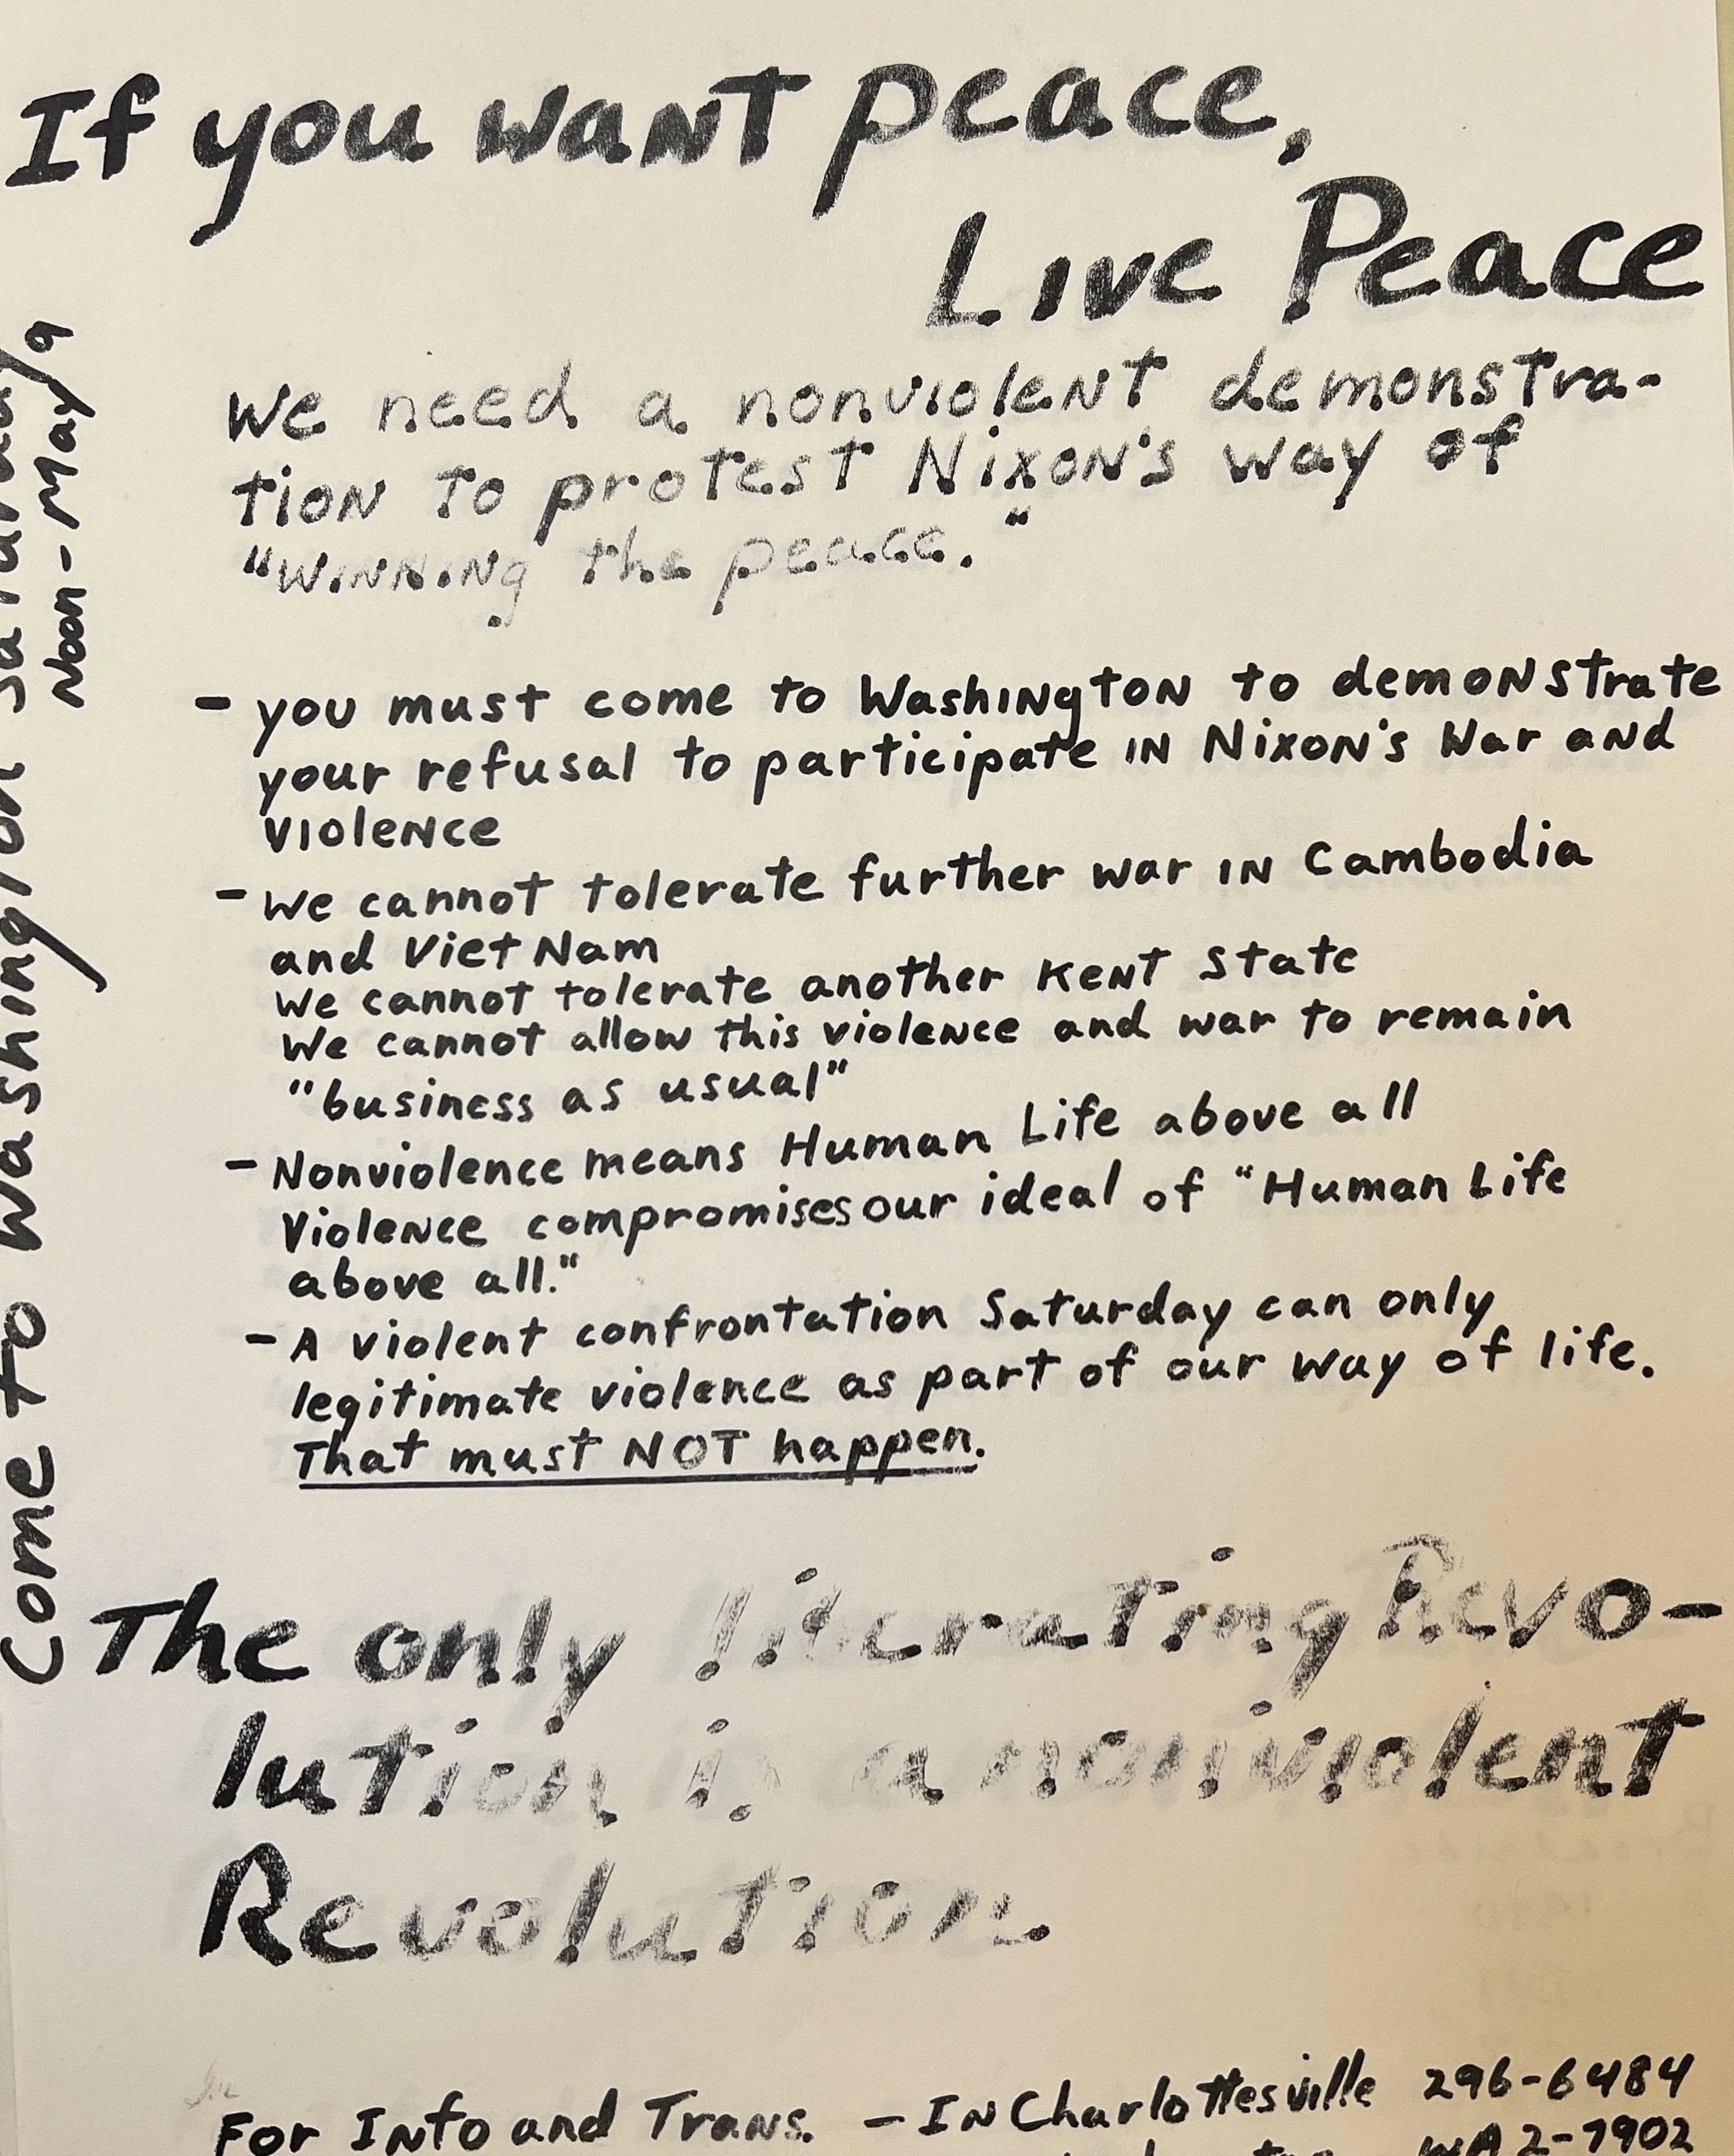 If you want peace,
Live Peace
We need a nonviolent demonstra-
tion to protest Nixon's way of
"winning the peace."
- you must come to Washington to demonstrate
your refusal to participate in Nixon's War and
violence
- We cannot tolerate further war in Cambodia
and Viet Nam
We cannot tolerate another Kent State
We cannot allow this violence and war to remain
"business as usual"
- Nonviolence means Human Life above all
Violence compromises our ideal of "Human Life
above all."
- A violent confrontation Saturday can only
legitimate violence as part of our way of life.
That must NOT happen.
The only liberating Revo-
lution is a nonviolent
Revolution
For Info and Trans. - In Charlottesville 296-6484
WA 2-7902
Come to Washington Saturday
Noon - May 9